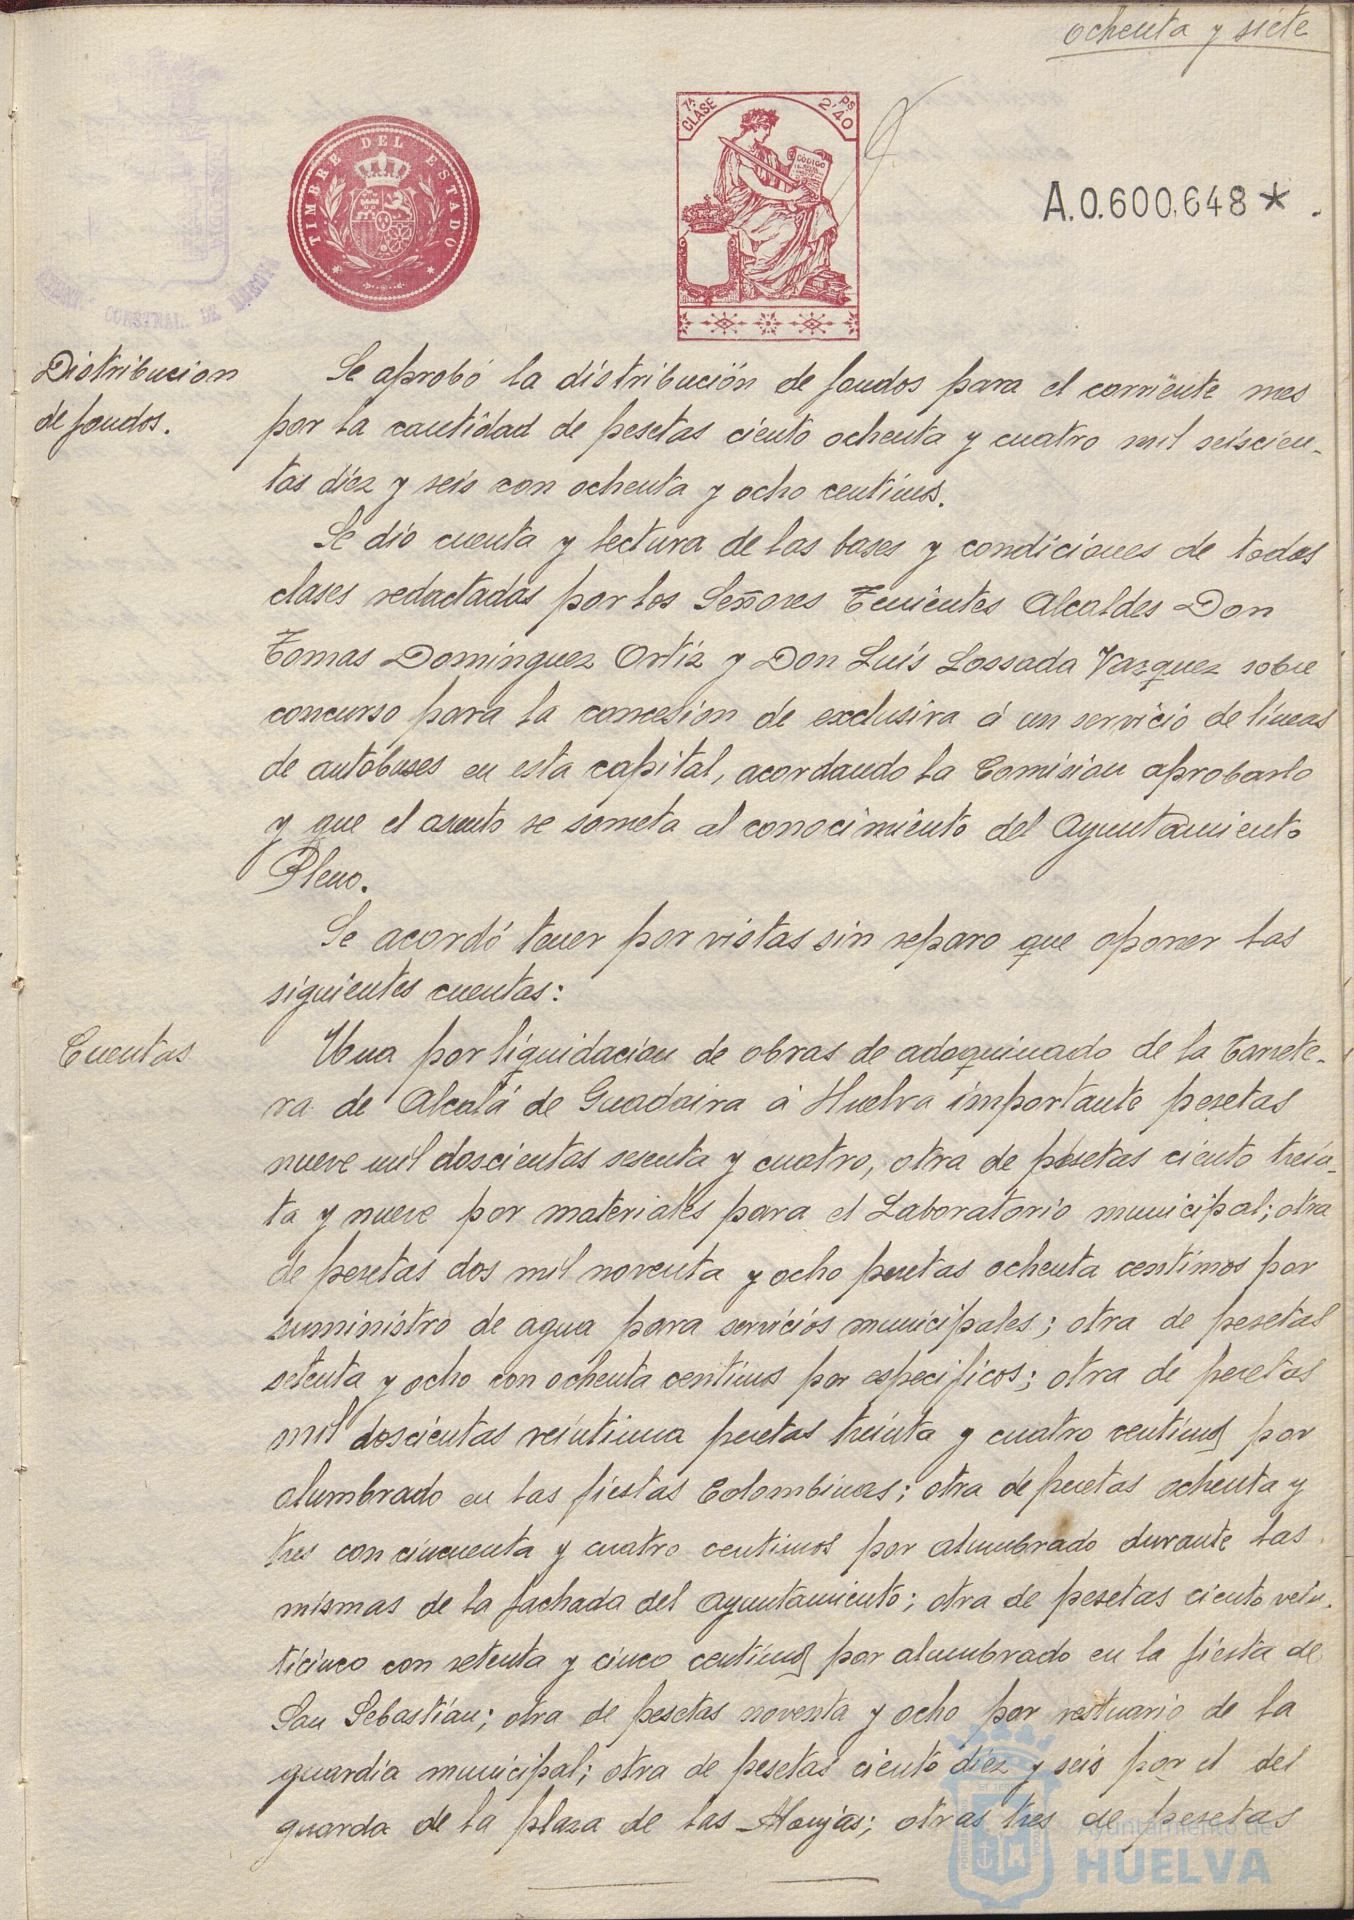 ochenta y siete
TIMBRE DEL ESTADO
7ª CLASE
2'40 Ps
CODIGO
A.0.600.648*
CONSTNAL. DE HUELVA
Distribucion
de fondos.
Se aprobó la distribución de fondos para el corriente mes
por la cantidad de pesetas ciento ochenta y cuatro mil seiscien-
tas diez y seis con ochenta y ocho centimos.
Se dió cuenta y lectura de las bases y condiciones de todas
clases redactadas por los Señores Tenientes Alcaldes Don
Tomas Dominguez Ortiz y Don Luis Lossada Vazquez sobre
concurso para la concesion de exclusiva á un servicio de lineas
de autobuses en esta capital, acordando la Comision aprobarlo
y que el asunto se someta al conocimiento del Ayuntamiento
Pleno.
Se acordó tener por vistas sin reparo que oponer las
siguientes cuentas:
Cuentas
Una por liquidacion de obras de adoquinado de la Carrete-
ra de Alcalá de Guadaira á Huelva importante pesetas
nueve mil doscientas sesenta y cuatro, otra de pesetas ciento trein-
ta y nueve por materiales para el Laboratorio municipal; otra
de pesetas dos mil noventa y ocho pesetas ochenta centimos por
suministro de agua para servicios municipales; otra de pesetas
setenta y ocho con ochenta centimos por especificos; otra de pesetas
mil doscientas veintiuna pesetas treinta y cuatro centimos por
alumbrado en las fiestas Colombinas; otra de pesetas ochenta y
tres con cincuenta y cuatro centimos por alumbrado durante las
mismas de la fachada del Ayuntamiento; otra de pesetas ciento vein-
ticinco con setenta y cinco centimos por alumbrado en la fiesta de
San Sebastian; otra de pesetas noventa y ocho por vestuario de la
guardia municipal; otra de pesetas ciento diez y seis por el del
guarda de la plaza de las Monjas; otras tres de pesetas
Ayuntamiento de
HUELVA